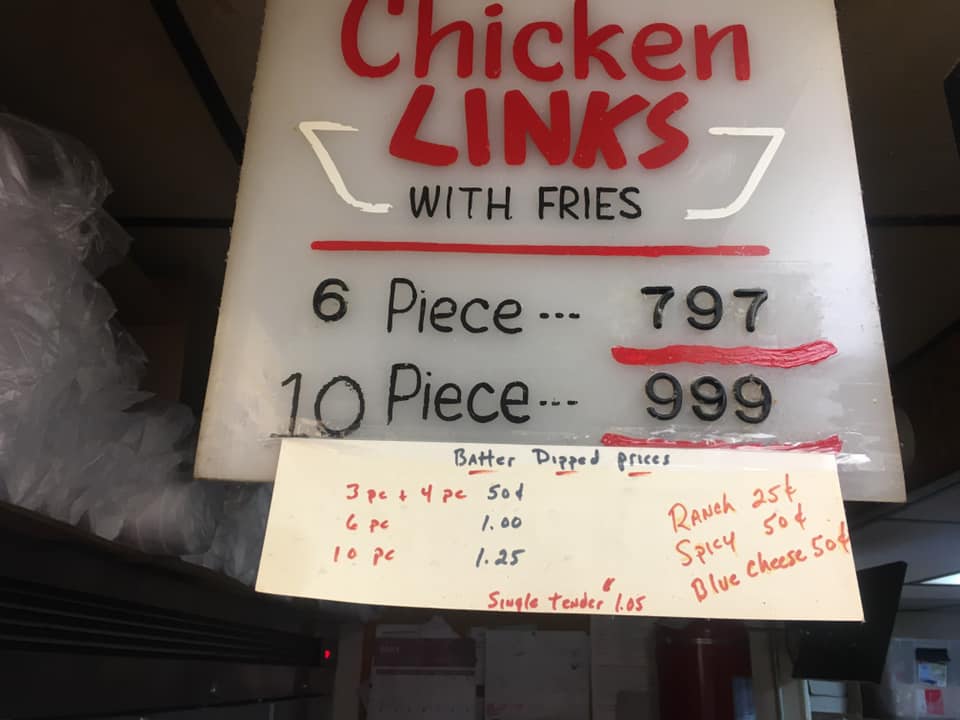 Chicken
LINKS
WITH FRIES
6 Piece --- 797
10 Piece --- 999
Batter Dipped prices
3 pc + 4 pc 50¢
6 pc 1.00
10 pc 1.25
Single tender 1.05
Ranch 25¢
Spicy 50¢
Blue Cheese 50¢